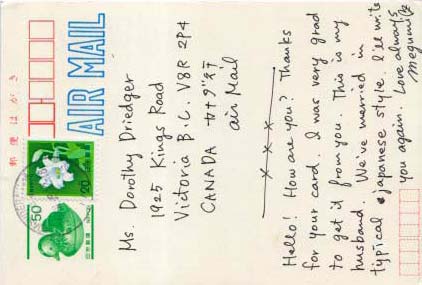 郵便はがき
AIR MAIL
20
50
日本郵便
Ms. Dorothy Driedger
1925 Kings Road
Victoria B.C. V8R 2P4
CANADA カナダ行
air Mail
Hello! How are you? Thanks
for your card. I was very grad
to get it from you. This is my
husband. We've married in
typical japanese style. I'll write
you again. Love always
megumi